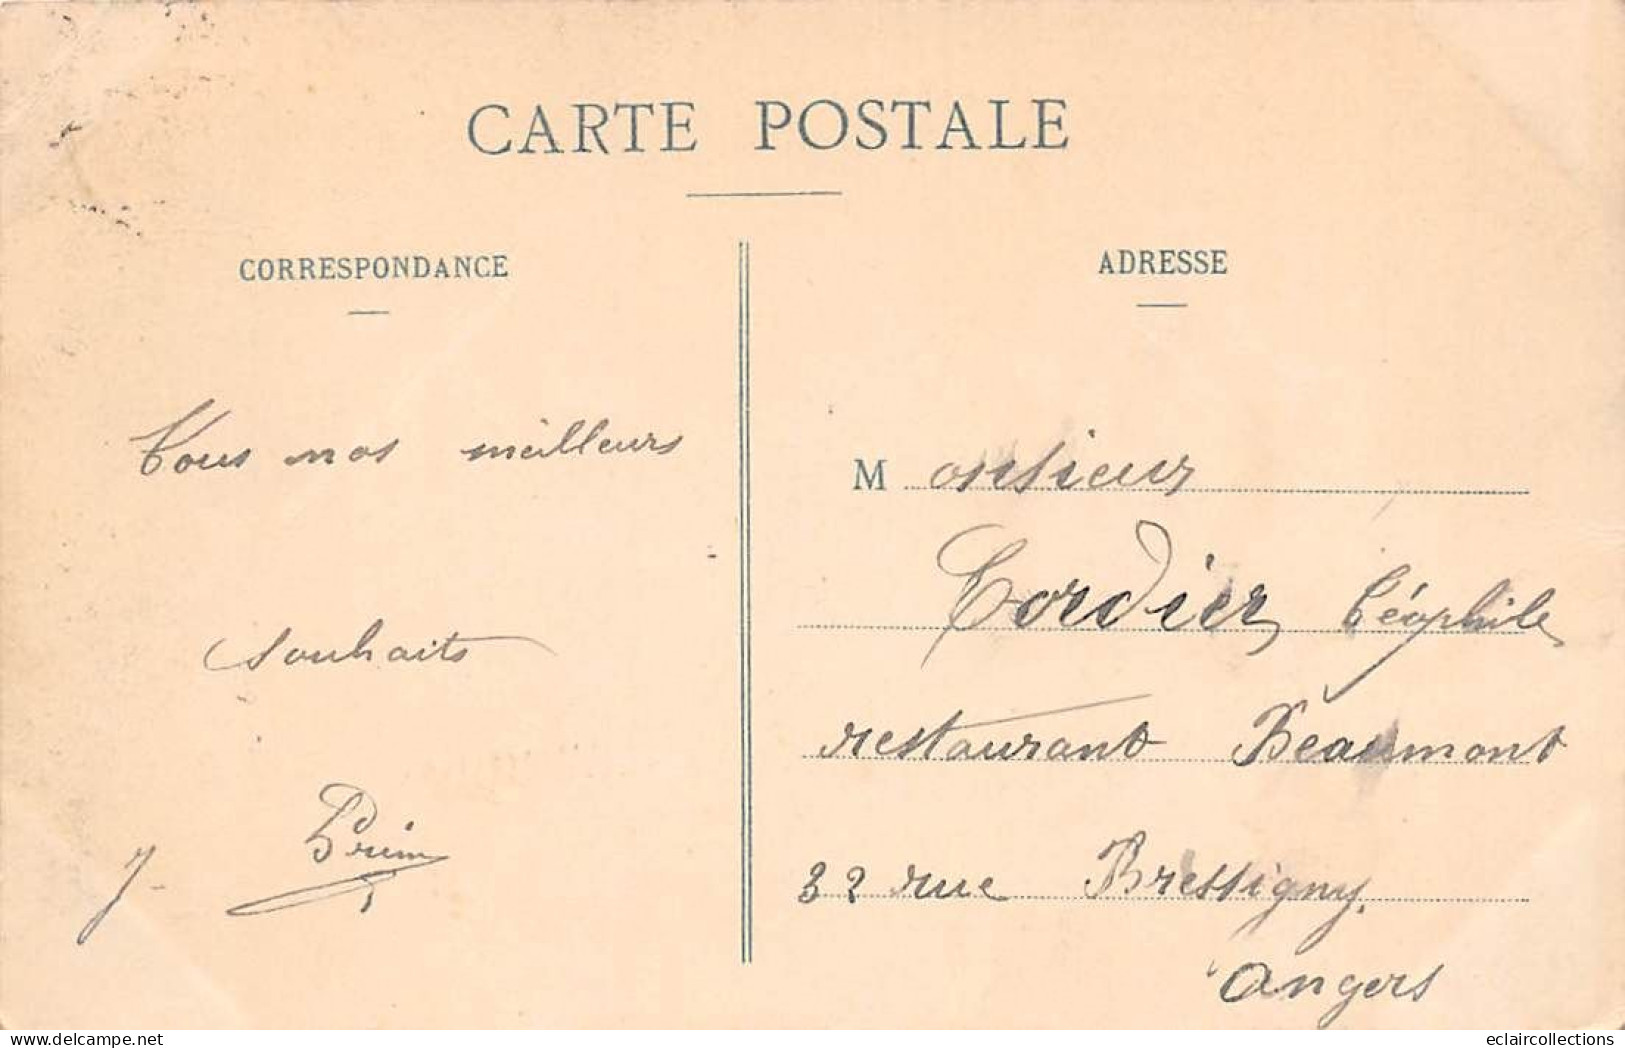 CARTE POSTALE
CORRESPONDANCE
Tous nos meilleurs
souhaits
J. Prim
ADRESSE
Monsieur
Cordier Téophile
restaurant Beaumont
32 rue Bressigny.
Angers
eclaircollections